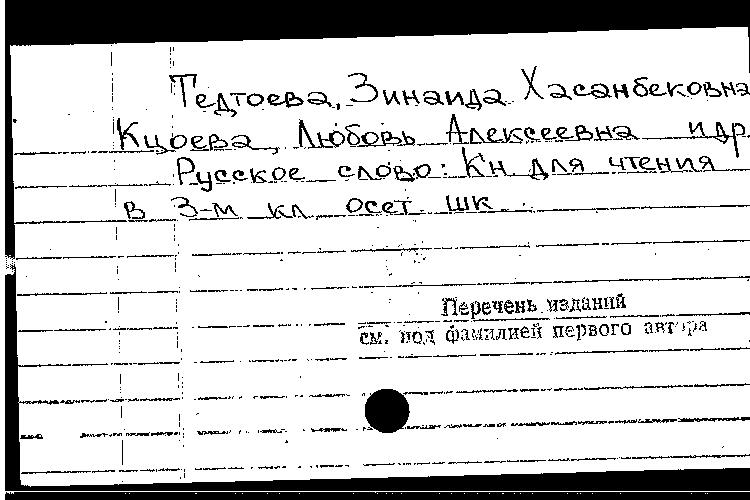 Тедтоева, Зинаида Хасанбековна
Кцоева, Любовь Алексеевна и др.
Русское слово: Кн для чтения
в 3-м кл. осет. шк.
Перечень изданий
см. под фамилией первого автора